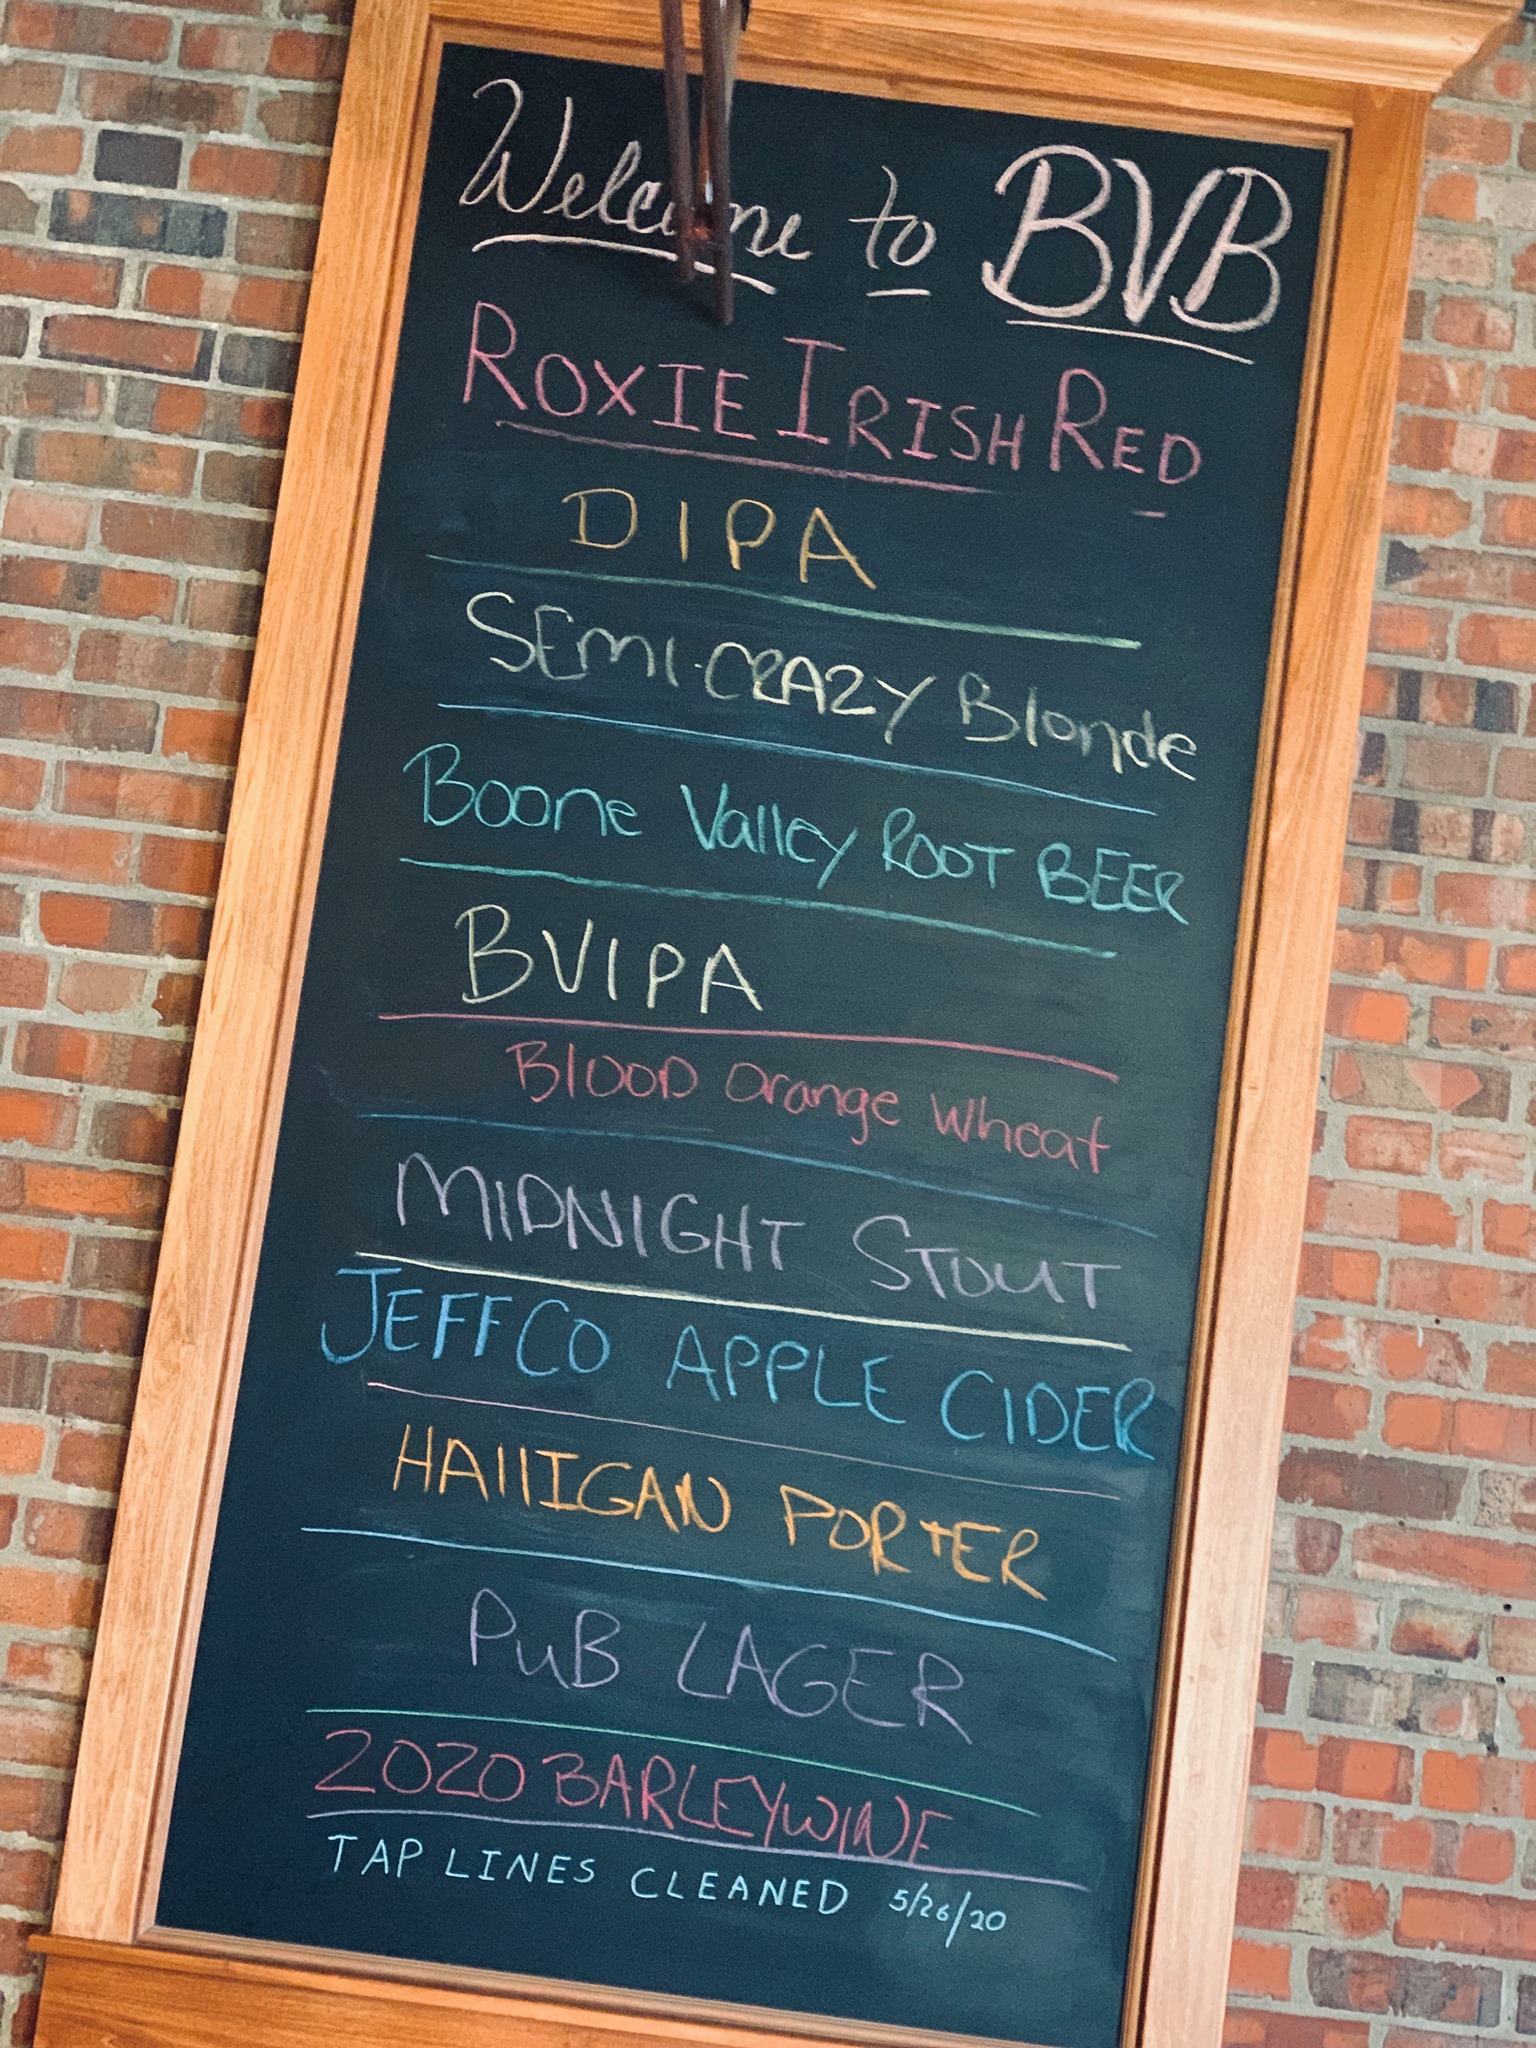 Welcome to BVB
ROXIE IRISH RED
DIPA
SEMI-CRAZY Blonde
Boone Valley ROOT BEER
BVIPA
BLOOD Orange Wheat
MIDNIGHT STOUT
JEFFCO APPLE CIDER
HAllIGAN PORTER
PuB LAGER
2020 BARLEYWINE
TAP LINES CLEANED 5/26/20